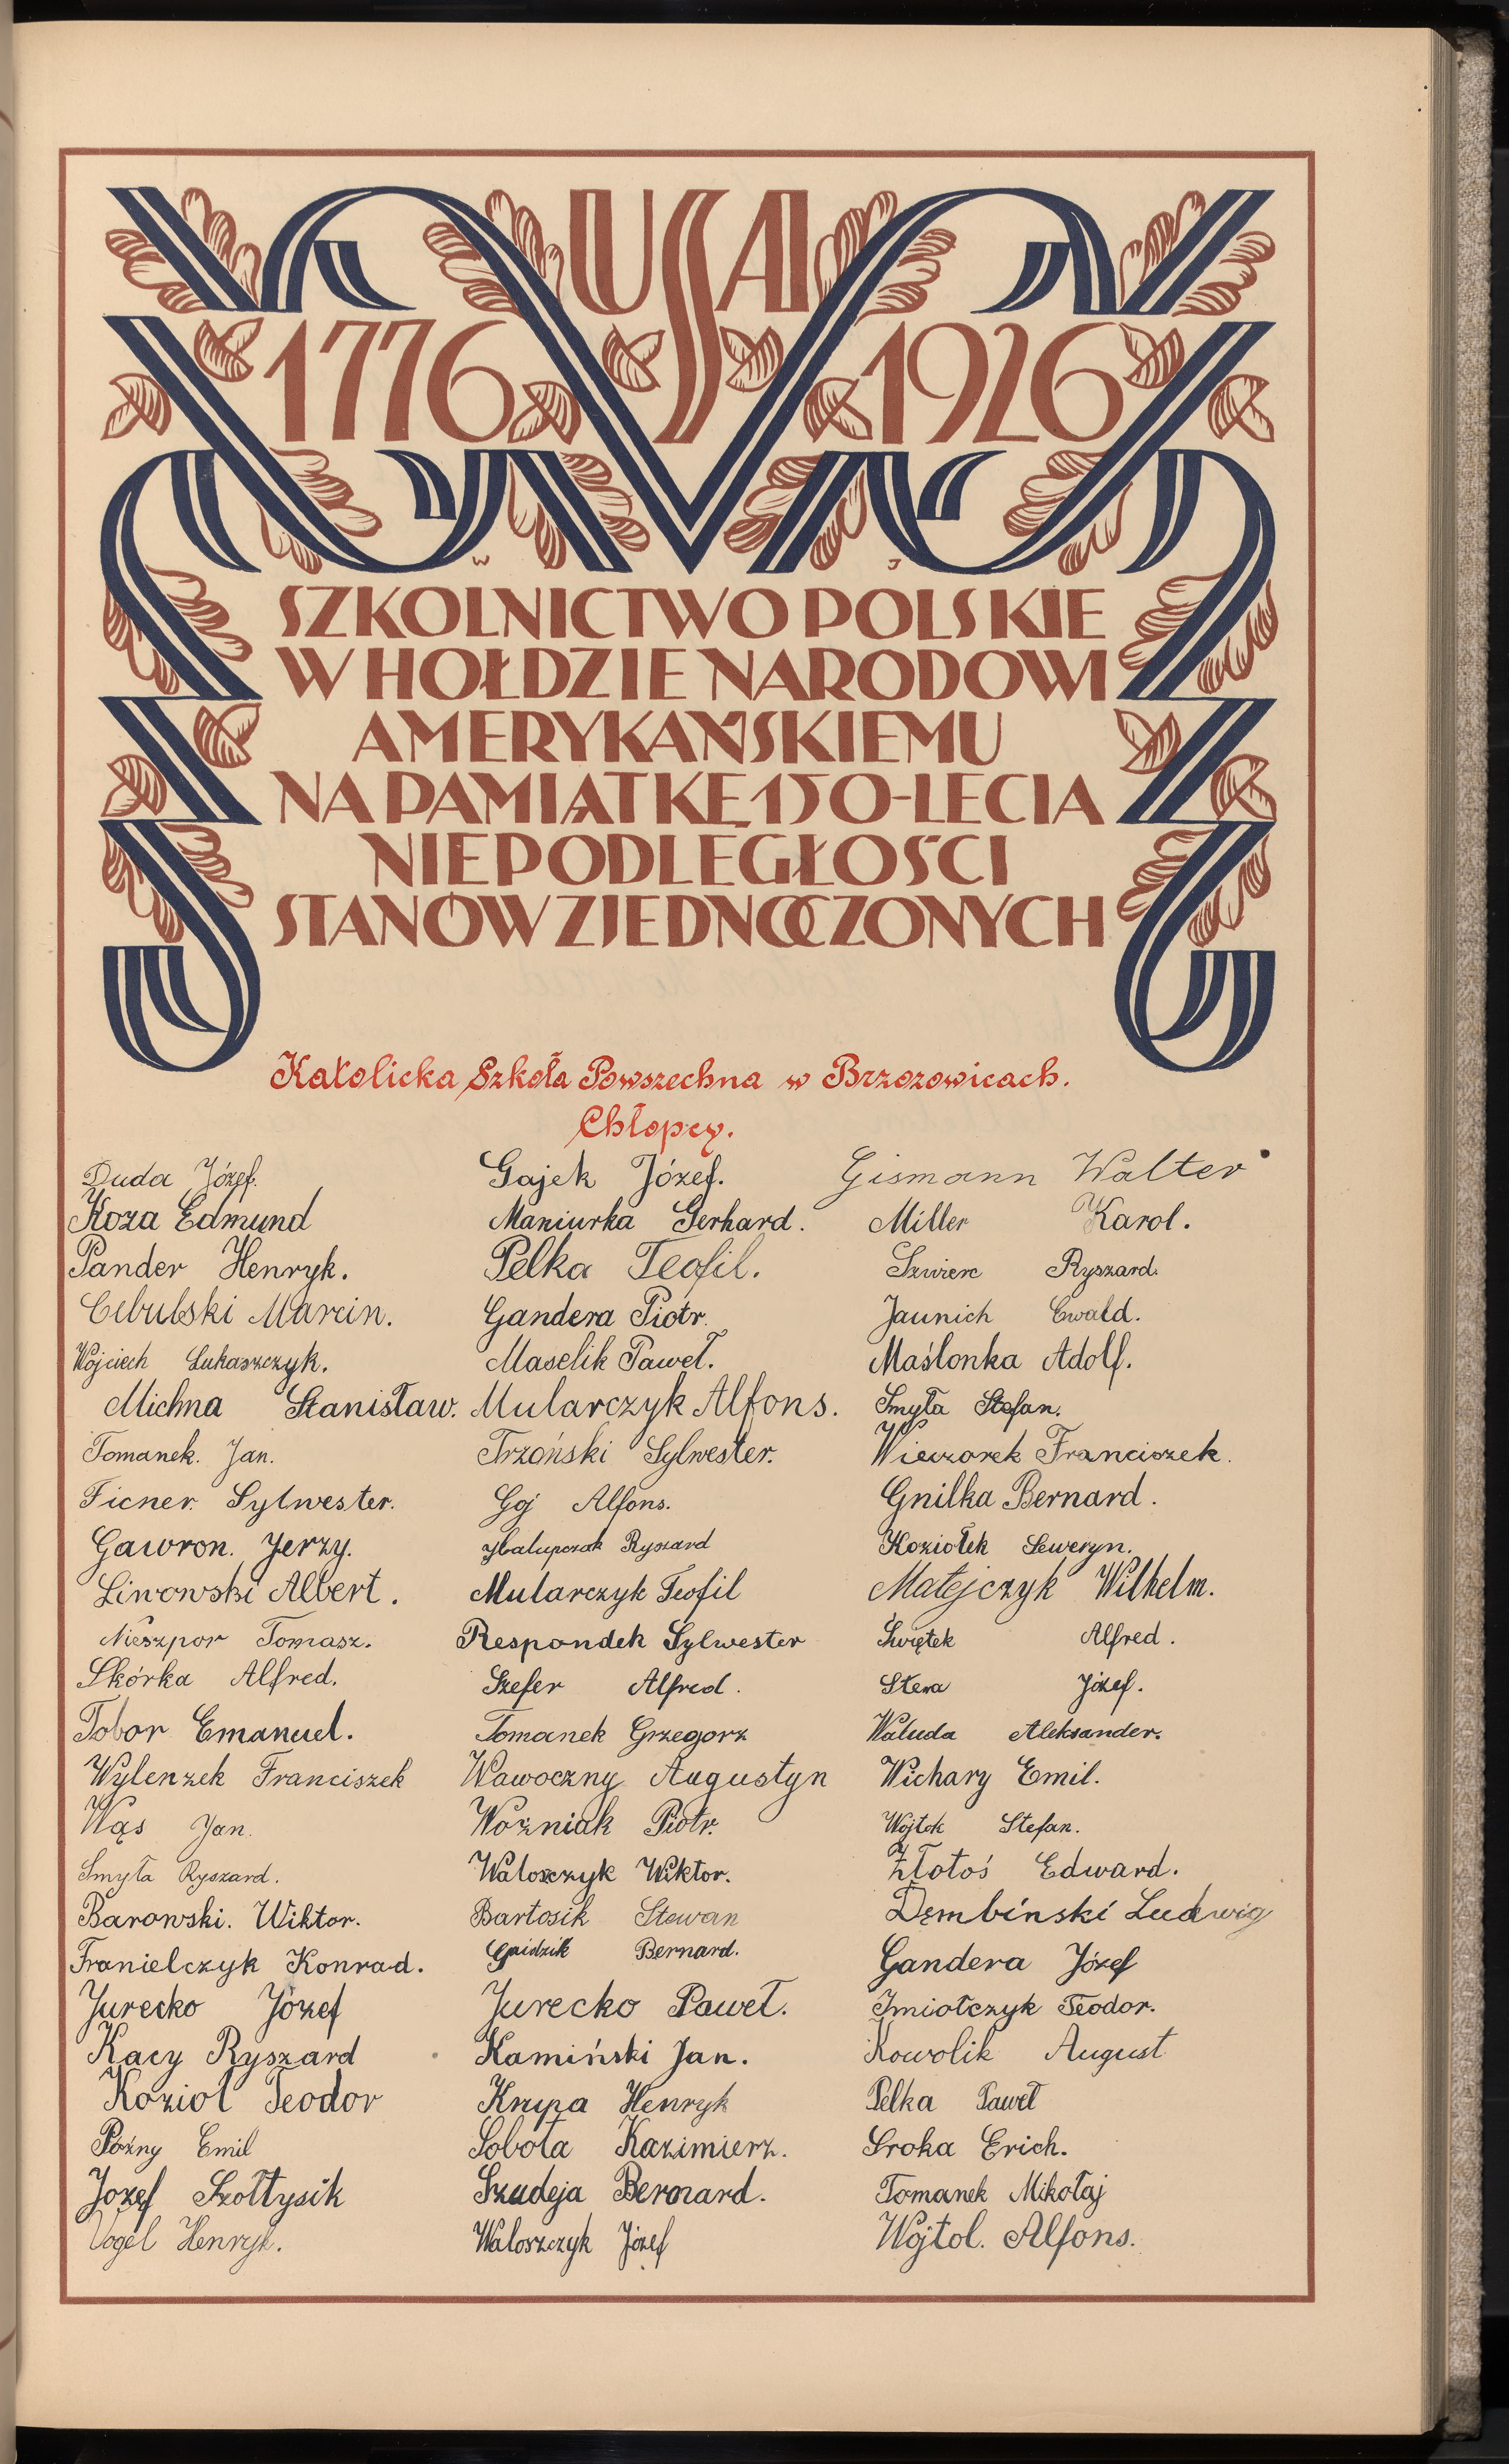 USA
1776 1926
W J
SZKOLNICTWO POLSKIE
W HOŁDZIE NARODOWI
AMERYKAŃSKIEMU
NA PAMIĄTKĘ 150-LECIA
NIEPODLEGŁOŚCI
STANÓW ZJEDNOCZONYCH
Katolicka Szkoła Powszechna w Brzozowicach.
Chłopcy.
Duda Józef. Gajek Józef. Gismann Walter
Koza Edmund Maniurka Gerhard. Miller Karol.
Pander Henryk. Pelka Teofil. Szwierc Ryszard.
Cebulski Marcin. Gandera Piotr. Jaunich Ewald.
Wojciech Łukaszczyk. Maselik Paweł. Maślonka Adolf.
Michna Stanisław. Mularczyk Alfons. Smyła Stefan.
Tomanek. Jan. Trzoński Sylwester. Wieczorek Franciszek.
Ficner. Sylwester. Goj Alfons. Gnilka Bernard.
Gawron. Jerzy. Ryszard Koziołek Seweryn.
Linowski Albert. Mularczyk Teofil Matejczyk Wilhelm.
Nieszpor Tomasz. Respondek Sylwester Świętek Alfred.
Skórka Alfred. Szefer Alfred. Stera Józef.
Tobor Emanuel. Tomanek Grzegorz Waluda Aleksander.
Wylenzek Franciszek Wawoczny Augustyn Wichary Emil.
Wąs Jan. Woźniak Piotr. Wojtok Stefan.
Smyła Ryszard. Waloszczyk Wiktor. Złotoś Edward.
Barowski. Wiktor. Bartosik Stewan Dęmbiński Ludwig
Franielczyk Konrad. Gaidzik Bernard. Gandera Józef
Jurecko Józef Jurecko Paweł. Imiołczyk Teodor.
Kacy Ryszard Kamiński Jan. Kowolik August
Koziol Teodor Krupa Henryk Pelka Paweł
Poźny Emil Sobota Kazimierz. Sroka Erich.
Jozef Szołtysik Szudeja Bernard. Tomanek Mikołaj
Vogel Henryk. Waloszczyk Józef Wojtol. Alfons.